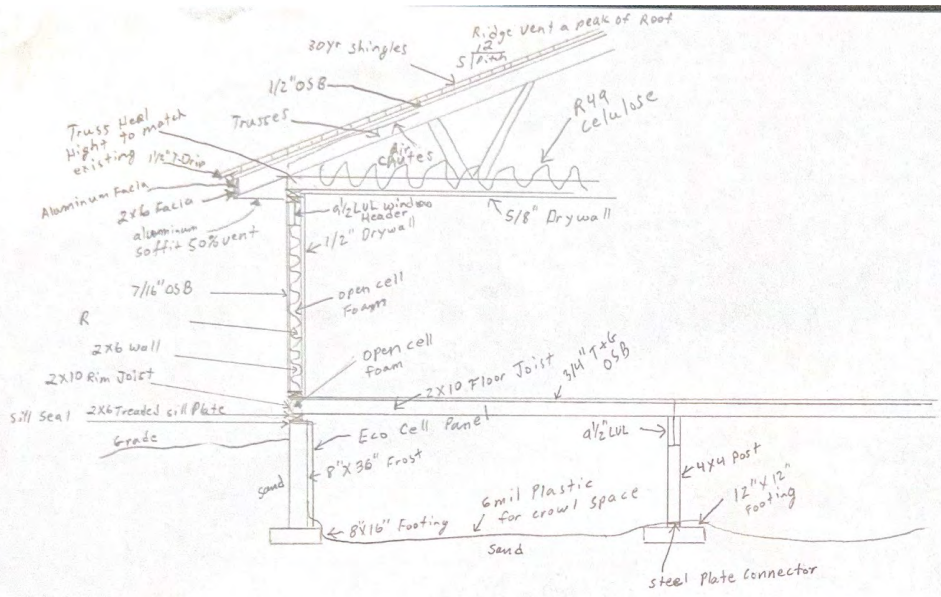 Ridge vent a peak of Roof
12
5 Pitch
30yr shingles
1/2" OSB
Trusses
Air
chutes
R49
celulose
Truss Heal
Hight to match
existing
1 1/2" T-Drip
Aluminum Facia
2x6 Facia
aluminum
soffit 50% vent
9 1/2 LVL window
Header
1/2" Drywall
5/8" Drywall
7/16" OSB
open cell
Foam
R
2x6 Wall
open cell
foam
2x10 Rim Joist
2x10 Floor Joist
3/4" T&G
OSB
Sill Seal
2x6 Treaded sill Plate
Grade
Eco Cell Panel
9 1/2" LVL
8"x36" Frost
4x4 Post
sand
6mil Plastic
for crowl space
12"x12"
Footing
8"x16" Footing
Sand
steel Plate Connector